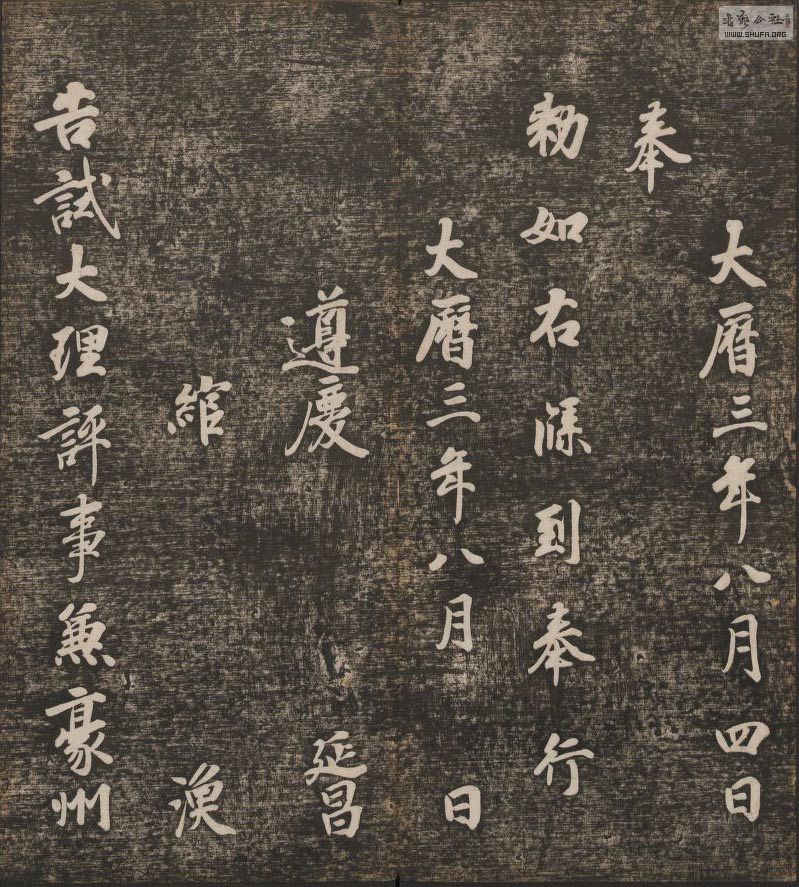 大曆三年八月四日
奉
勑如右牒到奉行
大曆三年八月 日
遵慶 延昌
綰 渙
告試大理評事兼豪州
WWW.SHUFA.ORG